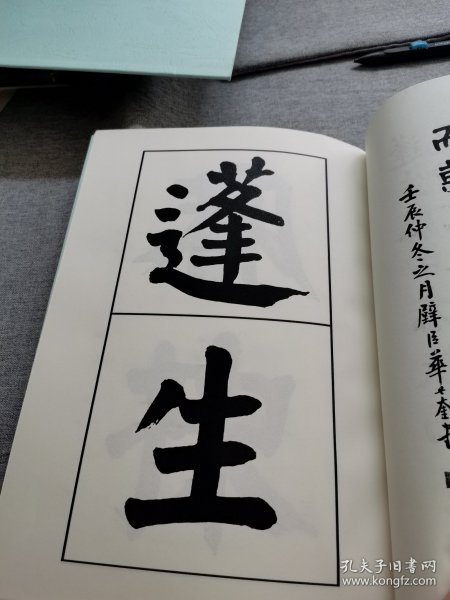 蓬
生
壬辰仲冬之月 臣華世奎
孔夫子旧书网
www.kongfz.com